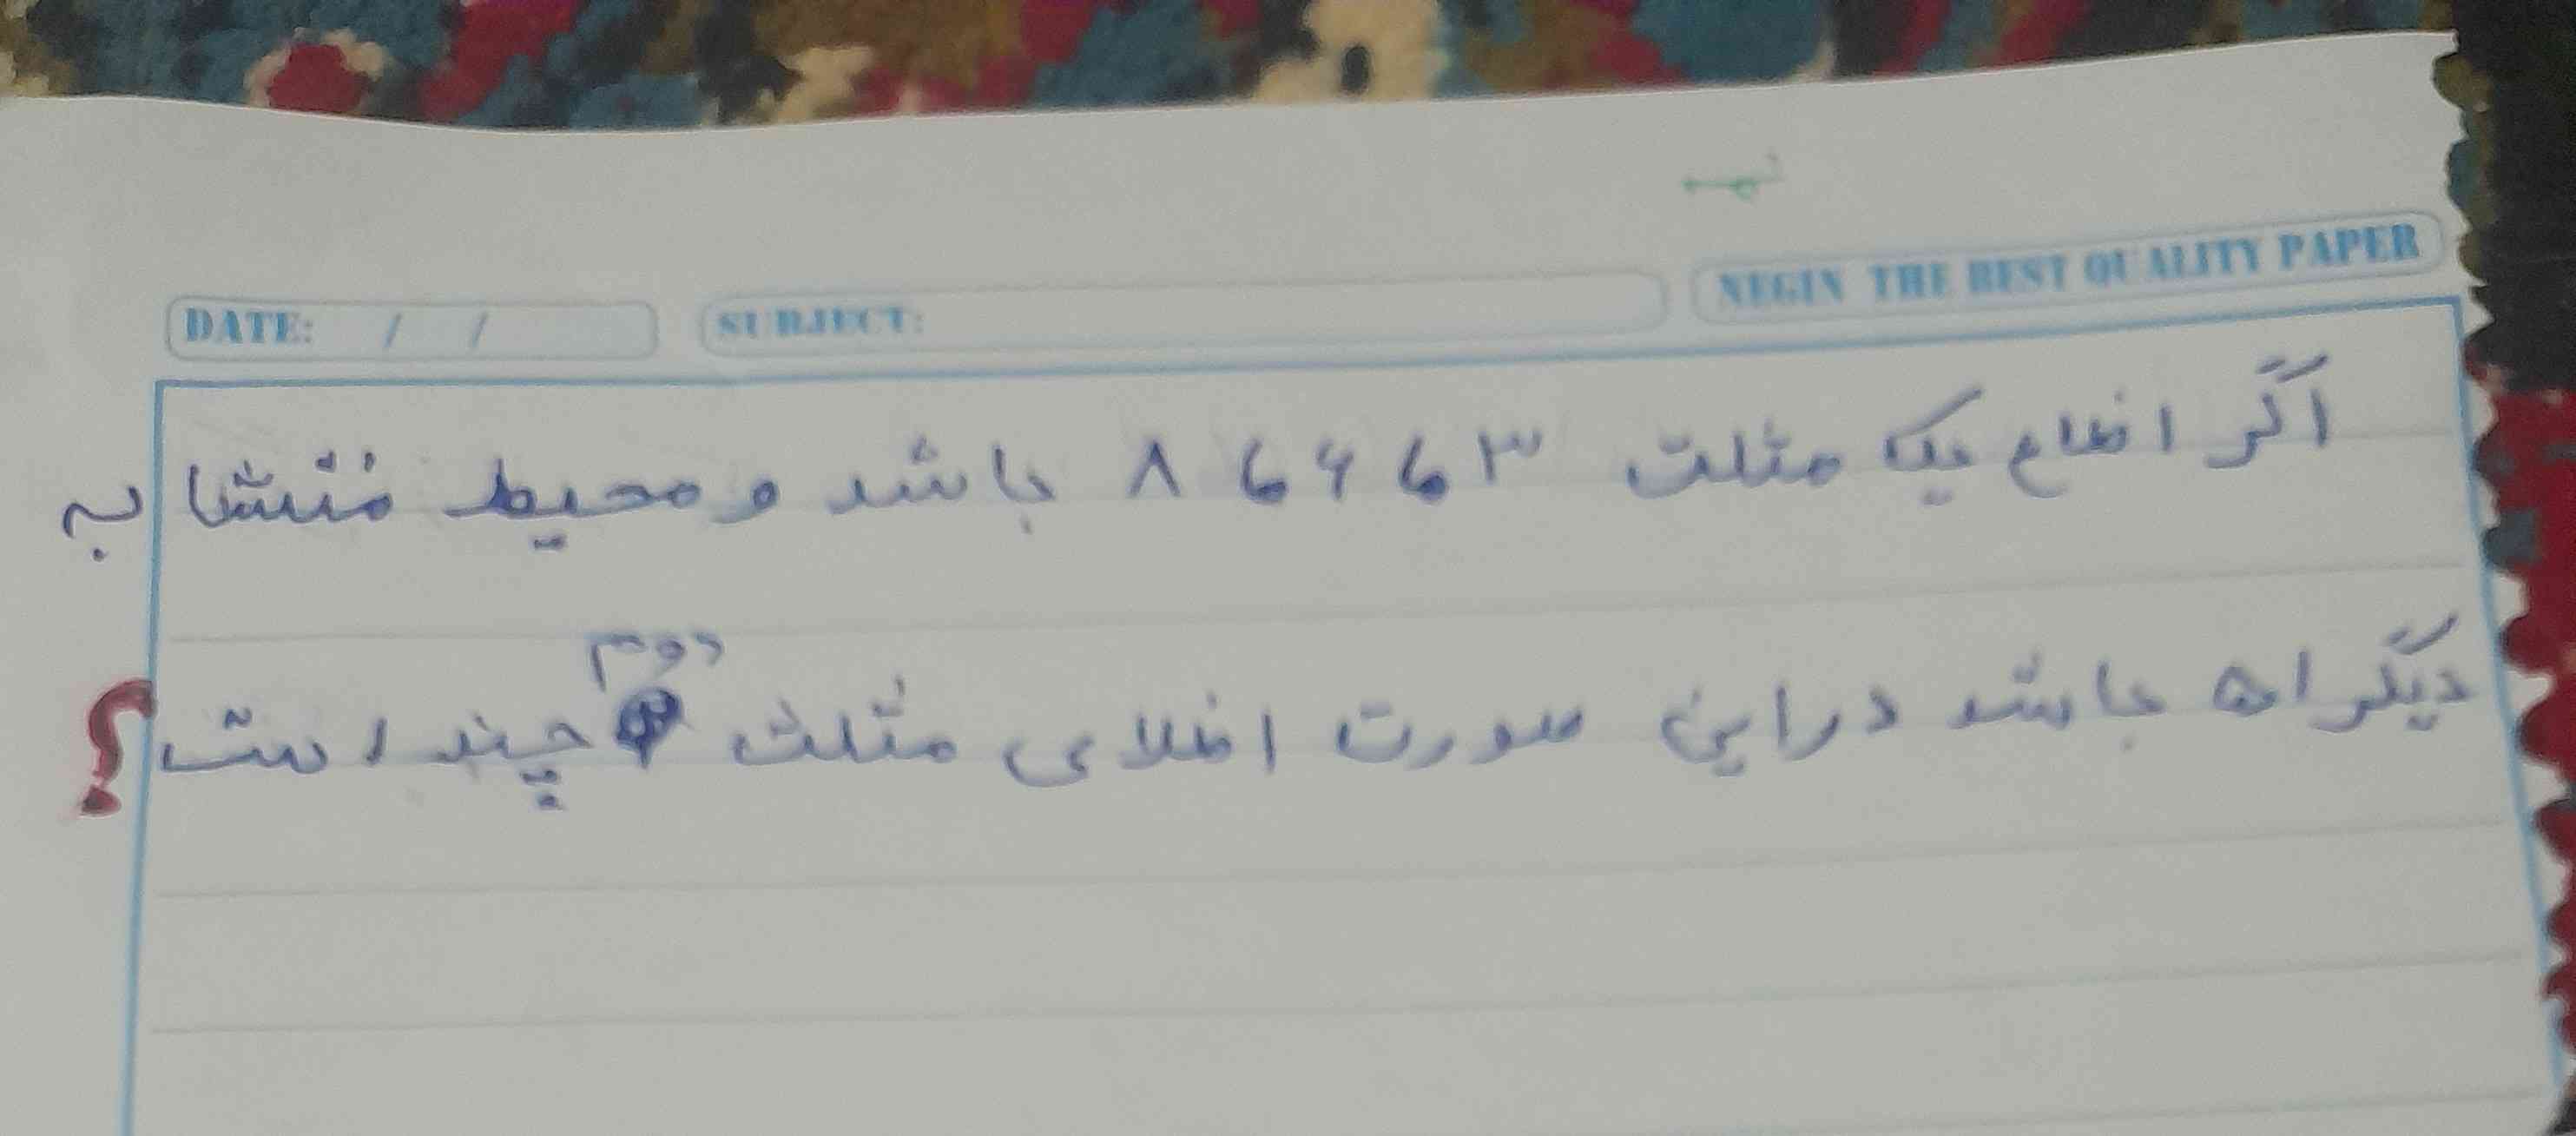 NEGIN THE BEST QUALITY PAPER
SUBJECT:
DATE: / /
اگر اضلاع یک مثلت ۳ و ۶ و ۸ باشد و محیط متشابه
دیگر ۵۱ باشد در این صورت اضلای مثلث دوم چند است؟